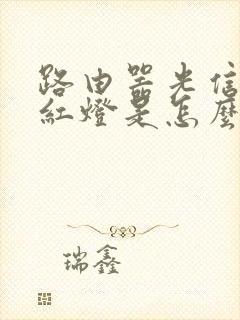 路由器光信
紅燈是怎麼
瑞鑫